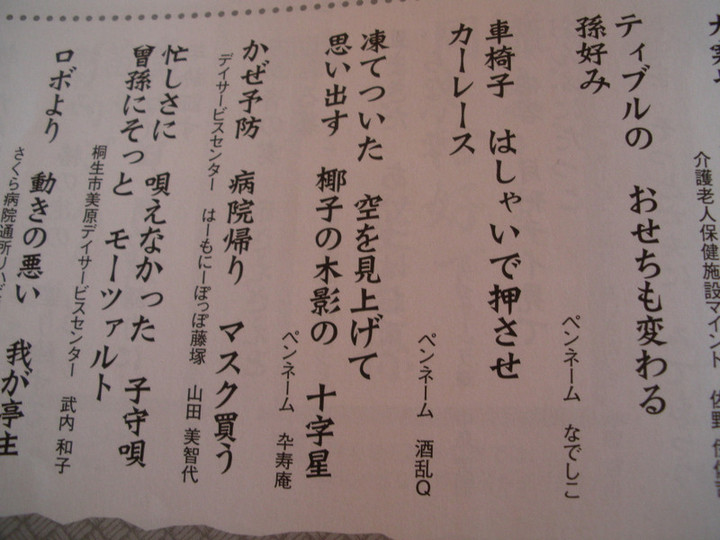 介護老人保健施設マインド 佐野
ティブルの おせちも変わる
孫好み
ペンネーム なでしこ
車椅子 はしゃいで押させ
カーレース
ペンネーム 酒乱Q
凍てついた 空を見上げて
思い出す 椰子の木影の 十字星
ペンネーム 卆寿庵
かぜ予防 病院帰り マスク買う
デイサービスセンター はーもにーぽっぽ藤塚 山田 美智代
忙しさに 唄えなかった 子守唄
曾孫にそっと モーツァルト
桐生市美原デイサービスセンター 武内 和子
ロボより 動きの悪い 我が亭主
さくら病院通所リハビ